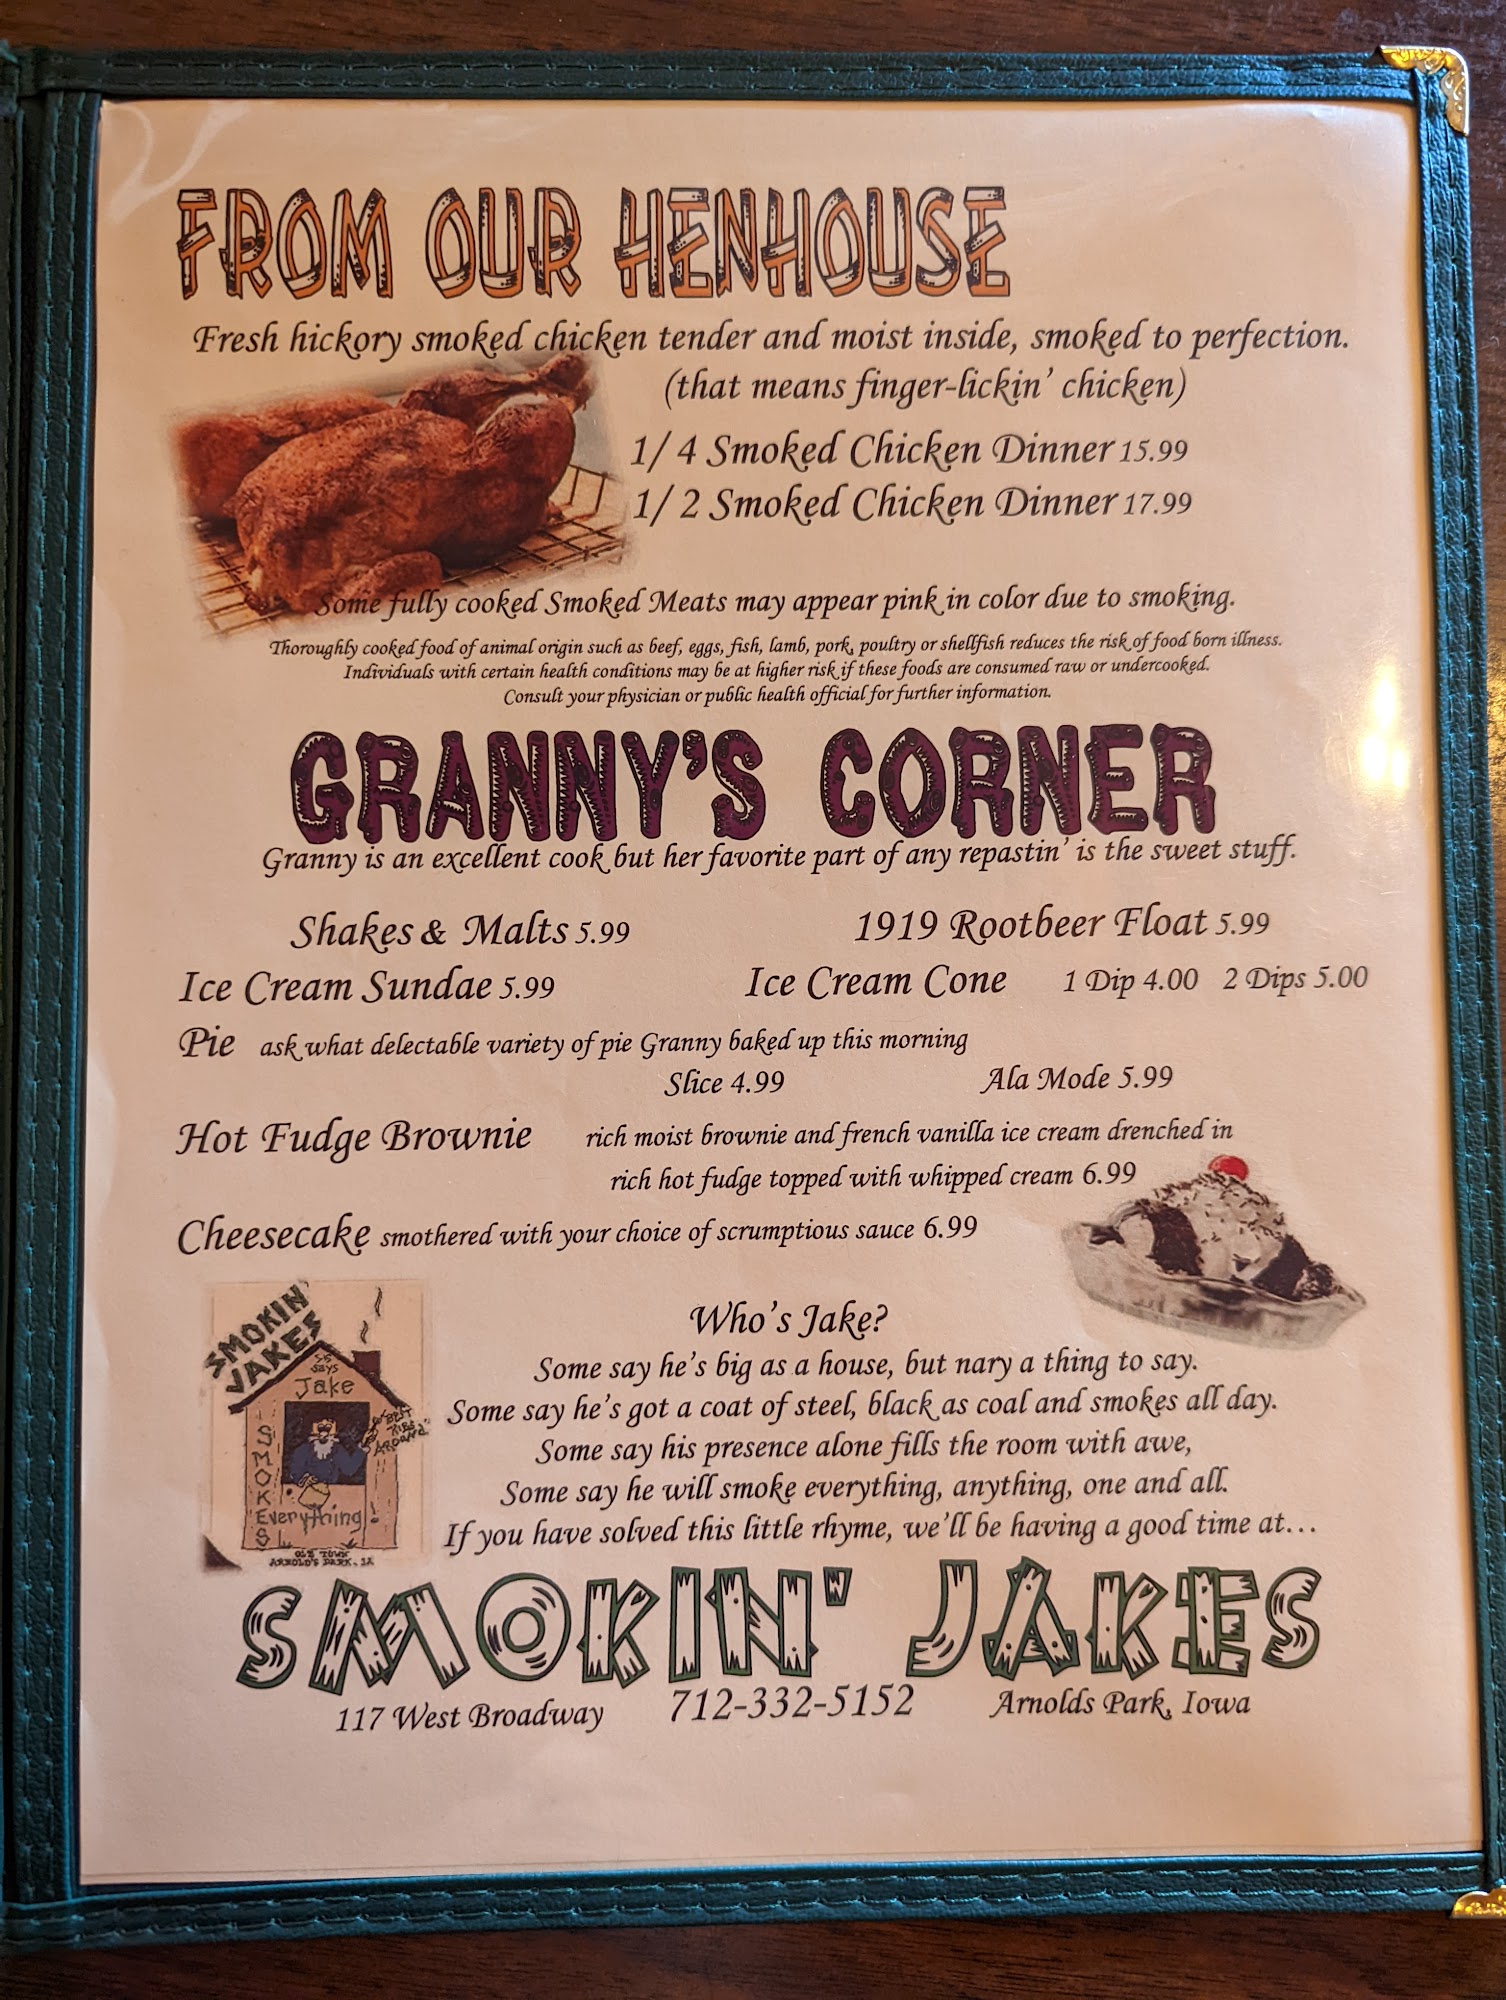 FROM OUR HENHOUSE
Fresh hickory smoked chicken tender and moist inside, smoked to perfection.
(that means finger-lickin' chicken)
1/ 4 Smoked Chicken Dinner 15.99
1/ 2 Smoked Chicken Dinner 17.99
Some fully cooked Smoked Meats may appear pink in color due to smoking.
Thoroughly cooked food of animal origin such as beef, eggs, fish, lamb, pork, poultry or shellfish reduces the risk of food born illness.
Individuals with certain health conditions may be at higher risk if these foods are consumed raw or undercooked.
Consult your physician or public health official for further information.
GRANNY'S CORNER
Granny is an excellent cook but her favorite part of any repastin' is the sweet stuff.
Shakes & Malts 5.99 1919 Rootbeer Float 5.99
Ice Cream Sundae 5.99 Ice Cream Cone 1 Dip 4.00 2 Dips 5.00
Pie ask what delectable variety of pie Granny baked up this morning
Slice 4.99 Ala Mode 5.99
Hot Fudge Brownie rich moist brownie and french vanilla ice cream drenched in
rich hot fudge topped with whipped cream 6.99
Cheesecake smothered with your choice of scrumptious sauce 6.99
SMOKIN'
JAKES
SS
SAYS
Jake
"BEST
RIBS
AROUND"
SMOKES
Everything!
OLD TOWN
ARNOLD'S PARK, IA
Who's Jake?
Some say he's big as a house, but nary a thing to say.
Some say he's got a coat of steel, black as coal and smokes all day.
Some say his presence alone fills the room with awe,
Some say he will smoke everything, anything, one and all.
If you have solved this little rhyme, we'll be having a good time at...
SMOKIN' JAKES
117 West Broadway 712-332-5152 Arnolds Park, Iowa